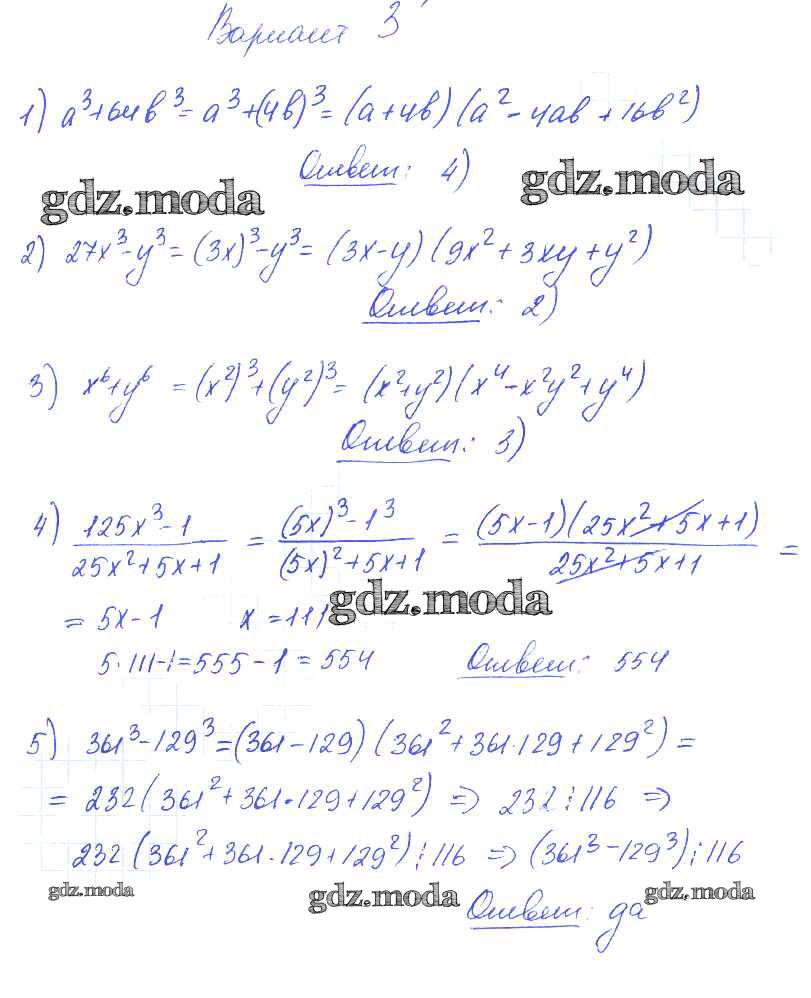 Вариант 3
1) a³+64b³ = a³+(4b)³ = (a+4b)(a²-4ab+16b²)
Ответ: 4)
gdz.moda gdz.moda
2) 27x³-y³ = (3x)³-y³ = (3x-y)(9x²+3xy+y²)
Ответ: 2)
3) x⁶+y⁶ = (x²)³+(y²)³ = (x²+y²)(x⁴-x²y²+y⁴)
Ответ: 3)
4) (125x³-1)/(25x²+5x+1) = ((5x)³-1³)/((5x)²+5x+1) = ((5x-1)(25x²+5x+1))/(25x²+5x+1) =
gdz.moda
= 5x-1 x=111
5·111-1=555-1=554 Ответ: 554
5) 361³-129³=(361-129)(361²+361·129+129²) =
= 232(361²+361·129+129²) ⇒ 232⋮116 ⇒
232(361²+361·129+129²)⋮116 ⇒ (361³-129³)⋮116
gdz.moda gdz.moda gdz.moda
Ответ: да